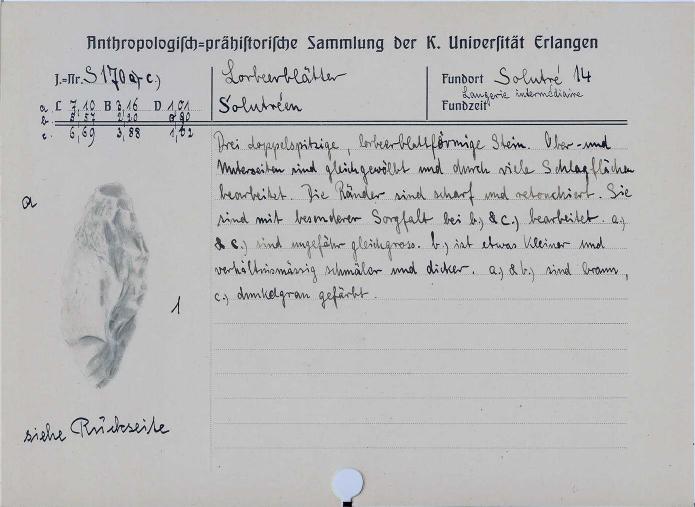 Anthropologisch=prähistorische Sammlung der K. Universität Erlangen
J.=Nr. S 170 a)-c.)
Lorbeerblätter
Solutréen
Fundort Solutré 14
Laugerie intermédiaire
Fundzeit
a. L 7,10 B 3,16 D 1,01
b. 2,20
c. 6,69 3,88 1,02
Drei doppelspitzige, lorbeerblattförmige Stein. Ober- und
Unterseiten sind gleichgewölbt und durch viele Schlagflächen
bearbeitet. Die Ränder sind scharf und retouchiert. Sie
sind mit besonderer Sorgfalt bei b.) & c.) bearbeitet. a.)
& c.) sind ungefähr gleichgross. b.) ist etwas kleiner und
verhältnismässig schmäler und dicker. a.) & b.) sind braun,
c.) dunkelgrau gefärbt.
a
1
siehe Rückseite